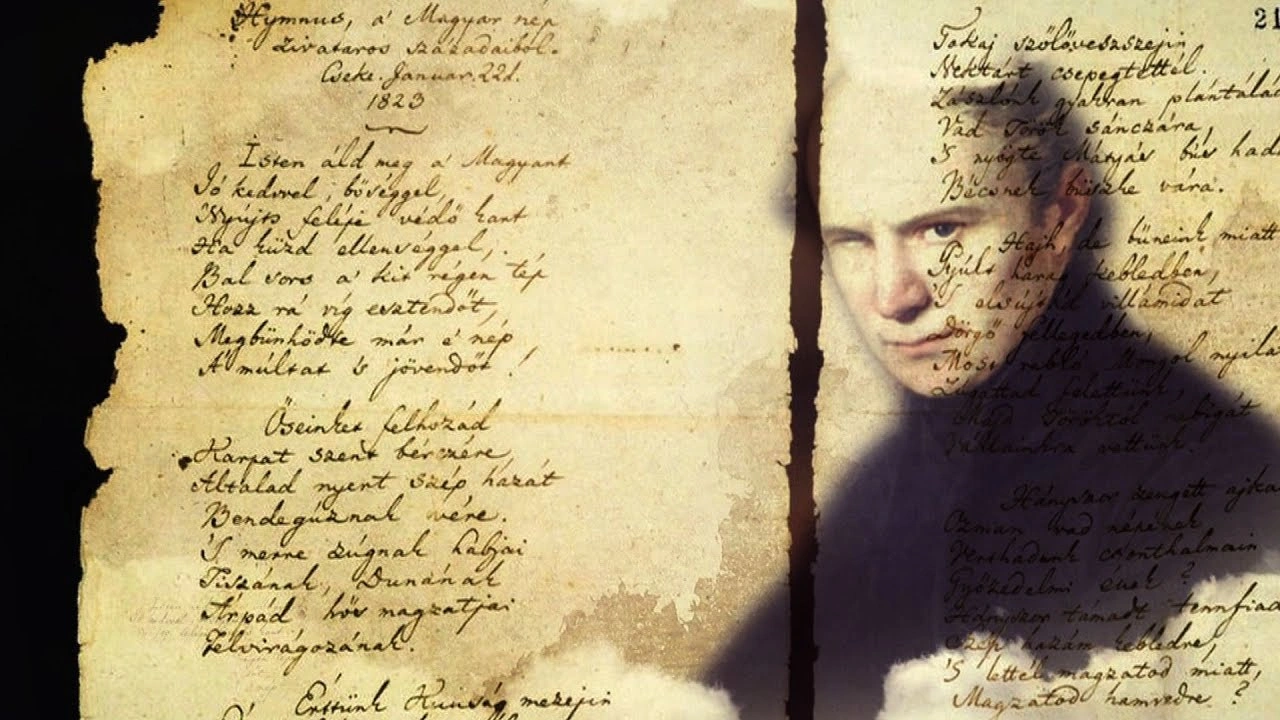 Hymnus, a' Magyar nép
Zivataros századaiból.
Cseke. Januar. 22d.
1823
Isten áld meg a' Magyart
Jó kedvvel, bőséggel,
Nyújts feléje védő kart
Ha küzd ellenséggel,
Bal sors a' kit régen tép
Hozz rá víg esztendőt,
Megbünhödte már é nép
A' múltat 's jövendőt!
Őseinket felhozád
Karpat szent bérczére,
Általad nyert szép hazát
Bendegúznak vére.
'S merre zúgnak habjai
Tiszának, Dunának
Árpád hős magzatjai
Felvirágozának.
Értünk Kunság mezején
21
Tokaj szőlőveszszejin
Nektárt csepegtettél.
Zászlónk gyakran plántálád
Vad Török sánczára,
'S nyögte Mátyás bús hadá
Bécsnek büszke vára.
Hajh, de bűneink miatt
Gyúlt harag kebledben,
'S elsújtád villámidat
Dörgő fellegedben,
Most rabló Mongol nyilá
Zúgattad felettünk,
Majd Töröktől rabigát
Vállainkra vettünk.
Hányszor zengett ajka
Ozman vad népének
Vert hadunk csonthalmain
Győzedelmi ének?
Hányszor támadt tennfiad
Szép hazám kebledre,
'S lettél magzatod miatt,
Magzatod hamvedre?